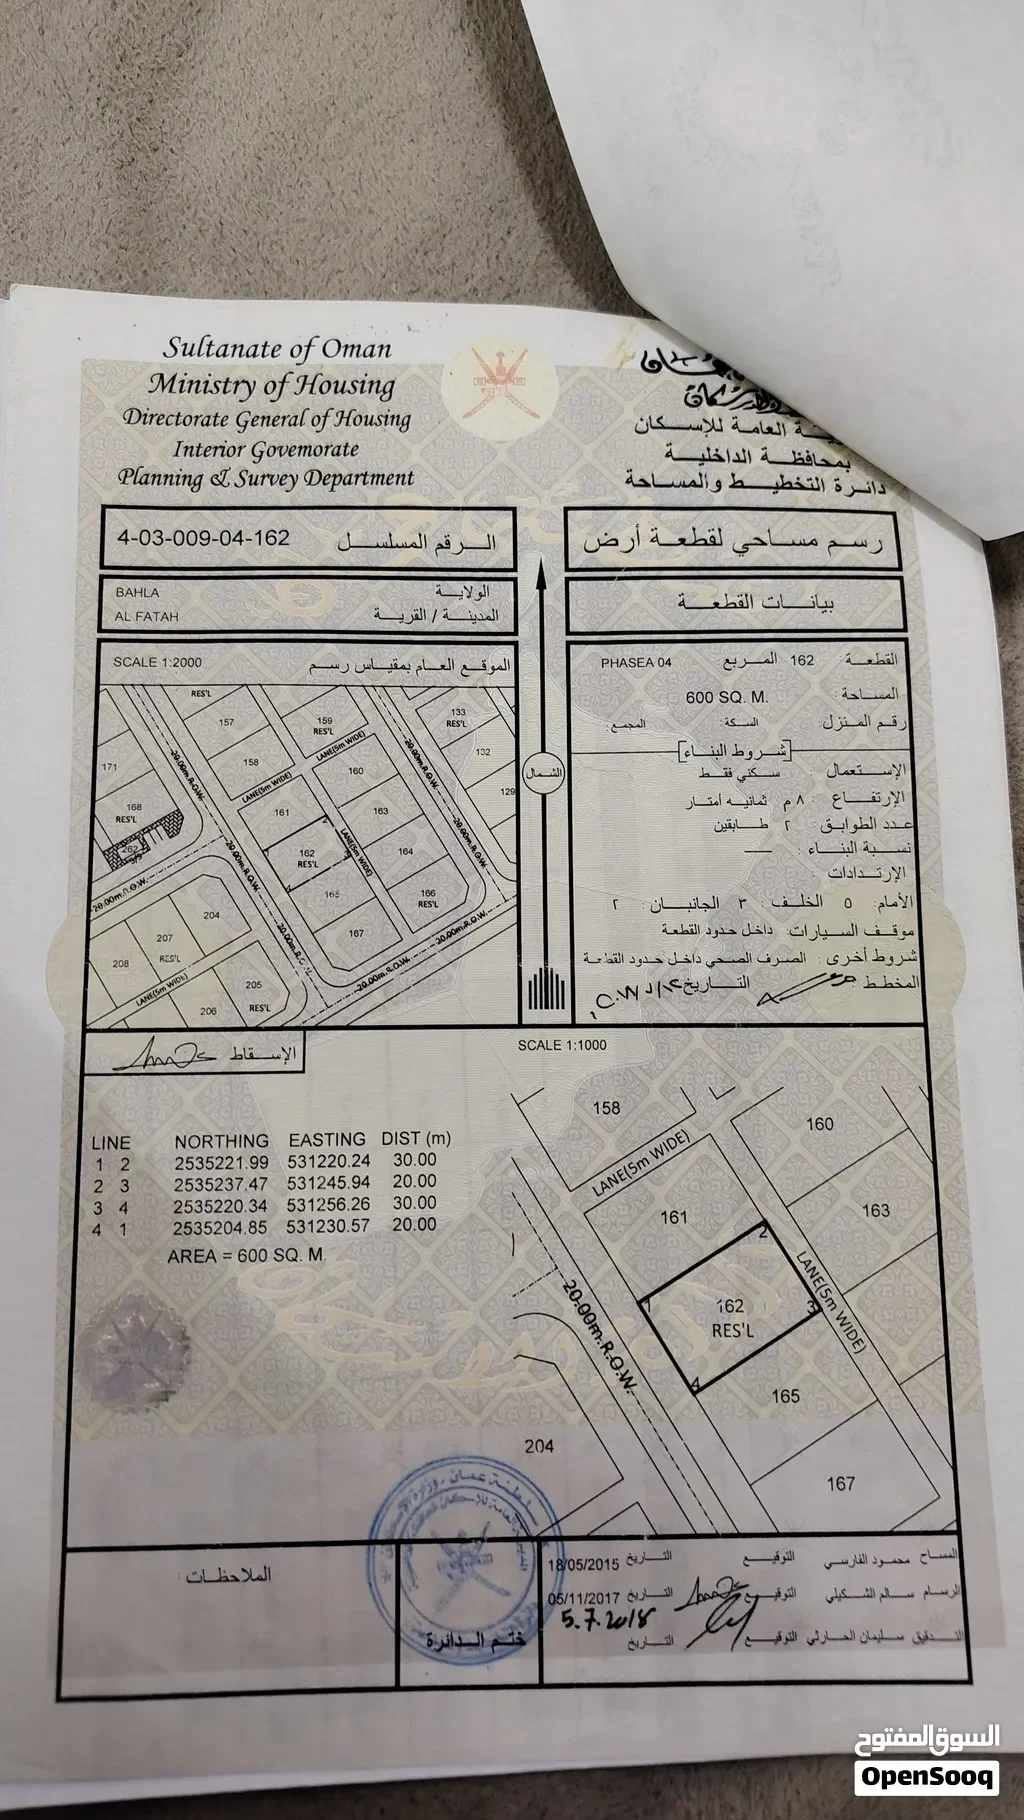 Sultanate of Oman
Ministry of Housing
Directorate General of Housing
Interior Governorate
Planning & Survey Department
العامة للإسكان
بمحافظة الداخلية
دائرة التخطيط والمساحة
4-03-009-04-162 الرقم المسلسل
رسم مساحي لقطعة أرض
BAHLA الولاية
AL FATAH المدينة / القرية
بيانات القطعة
SCALE 1:2000 الموقع العام بمقياس رسم
القطعة: 162 المربع: PHASEA 04
المساحة 600 SQ. M.
رقم المنزل: السكة: المجمع:
[شروط البناء]
الإستعمال : سكني فقط
الإرتفاع : ٨ م ثمانيه أمتار
عدد الطوابق: ٢ طابقين
نسبة البناء :
الإرتدادات :
الأمام: ٥ الخلف: ٣ الجانبان: ٢
موقف السيارات: داخل حدود القطعة
شروط أخرى: الصرف الصحي داخل حدود القطعة
المخطط التاريخ
RES'L
157
159
RES'L
133
RES'L
132
129
171
158
LANE(5m WIDE)
LANE(5m WIDE)
160
168
RES'L
161
163
162
RES'L
LANE(5m WIDE)
164
165
166
RES'L
167
20.00m.R.O.W.
20.00m.R.O.W.
20.00m.R.O.W.
20.00m.R.O.W.
20.00m.R.O.W.
20.00m.R.O.W.
20.00m.R.O.W.
20.00m.R.O.W.
204
207
RES'L
208
LANE(5m WIDE)
205
RES'L
206
الشمال
الإسقاط
SCALE 1:1000
LINE NORTHING EASTING DIST (m)
1 2 2535221.99 531220.24 30.00
2 3 2535237.47 531245.94 20.00
3 4 2535220.34 531256.26 30.00
4 1 2535204.85 531230.57 20.00
AREA = 600 SQ. M.
158
160
LANE(5m WIDE)
161
163
2
1
162
RES'L
3
4
LANE(5m WIDE)
20.00m.R.O.W.
165
204
167
الملاحظات:
ختم الدائرة
المساح محمود الفارسي التوقيع التاريخ 18/05/2015
الرسام سالم الشكيلي التوقيع التاريخ 05/11/2017
التدقيق سليمان الحارثي التوقيع التاريخ 5.7.2018
السوق المفتوح
OpenSooq